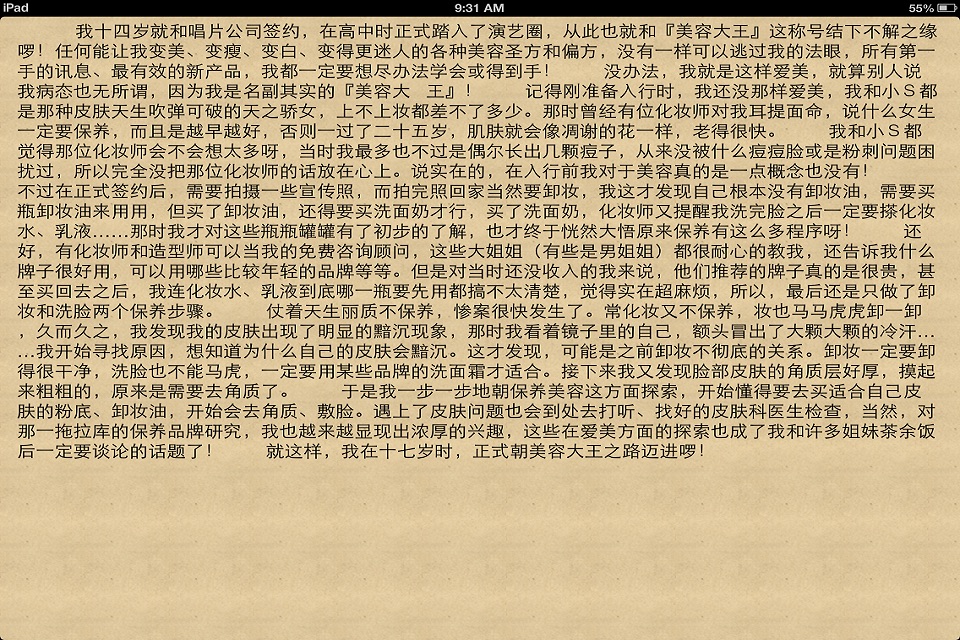 iPad
9:31 AM
55%
我十四岁就和唱片公司签约，在高中时正式踏入了演艺圈，从此也就和『美容大王』这称号结下不解之缘
啰！任何能让我变美、变瘦、变白、变得更迷人的各种美容圣方和偏方，没有一样可以逃过我的法眼，所有第一
手的讯息、最有效的新产品，我都一定要想尽办法学会或得到手！　　没办法，我就是这样爱美，就算别人说
我病态也无所谓，因为我是名副其实的『美容大　王』！　　记得刚准备入行时，我还没那样爱美，我和小Ｓ都
是那种皮肤天生吹弹可破的天之骄女，上不上妆都差不了多少。那时曾经有位化妆师对我耳提面命，说什么女生
一定要保养，而且是越早越好，否则一过了二十五岁，肌肤就会像凋谢的花一样，老得很快。　　我和小Ｓ都
觉得那位化妆师会不会想太多呀，当时我最多也不过是偶尔长出几颗痘子，从来没被什么痘痘脸或是粉刺问题困
扰过，所以完全没把那位化妆师的话放在心上。说实在的，在入行前我对于美容真的是一点概念也没有！
不过在正式签约后，需要拍摄一些宣传照，而拍完照回家当然要卸妆，我这才发现自己根本没有卸妆油，需要买
瓶卸妆油来用用，但买了卸妆油，还得要买洗面奶才行，买了洗面奶，化妆师又提醒我洗完脸之后一定要搽化妆
水、乳液……那时我才对这些瓶瓶罐罐有了初步的了解，也才终于恍然大悟原来保养有这么多程序呀！　　还
好，有化妆师和造型师可以当我的免费咨询顾问，这些大姐姐（有些是男姐姐）都很耐心的教我，还告诉我什么
牌子很好用，可以用哪些比较年轻的品牌等等。但是对当时还没收入的我来说，他们推荐的牌子真的是很贵，甚
至买回去之后，我连化妆水、乳液到底哪一瓶要先用都搞不太清楚，觉得实在超麻烦，所以，最后还是只做了卸
妆和洗脸两个保养步骤。　　仗着天生丽质不保养，惨案很快发生了。常化妆又不保养，妆也马马虎虎卸一卸
，久而久之，我发现我的皮肤出现了明显的黯沉现象，那时我看着镜子里的自己，额头冒出了大颗大颗的冷汗…
…我开始寻找原因，想知道为什么自己的皮肤会黯沉。这才发现，可能是之前卸妆不彻底的关系。卸妆一定要卸
得很干净，洗脸也不能马虎，一定要用某些品牌的洗面霜才适合。接下来我又发现脸部皮肤的角质层好厚，摸起
来粗粗的，原来是需要去角质了。　　于是我一步一步地朝保养美容这方面探索，开始懂得要去买适合自己皮
肤的粉底、卸妆油，开始会去角质、敷脸。遇上了皮肤问题也会到处去打听、找好的皮肤科医生检查，当然，对
那一拖拉库的保养品牌研究，我也越来越显现出浓厚的兴趣，这些在爱美方面的探索也成了我和许多姐妹茶余饭
后一定要谈论的话题了！　　就这样，我在十七岁时，正式朝美容大王之路迈进啰！